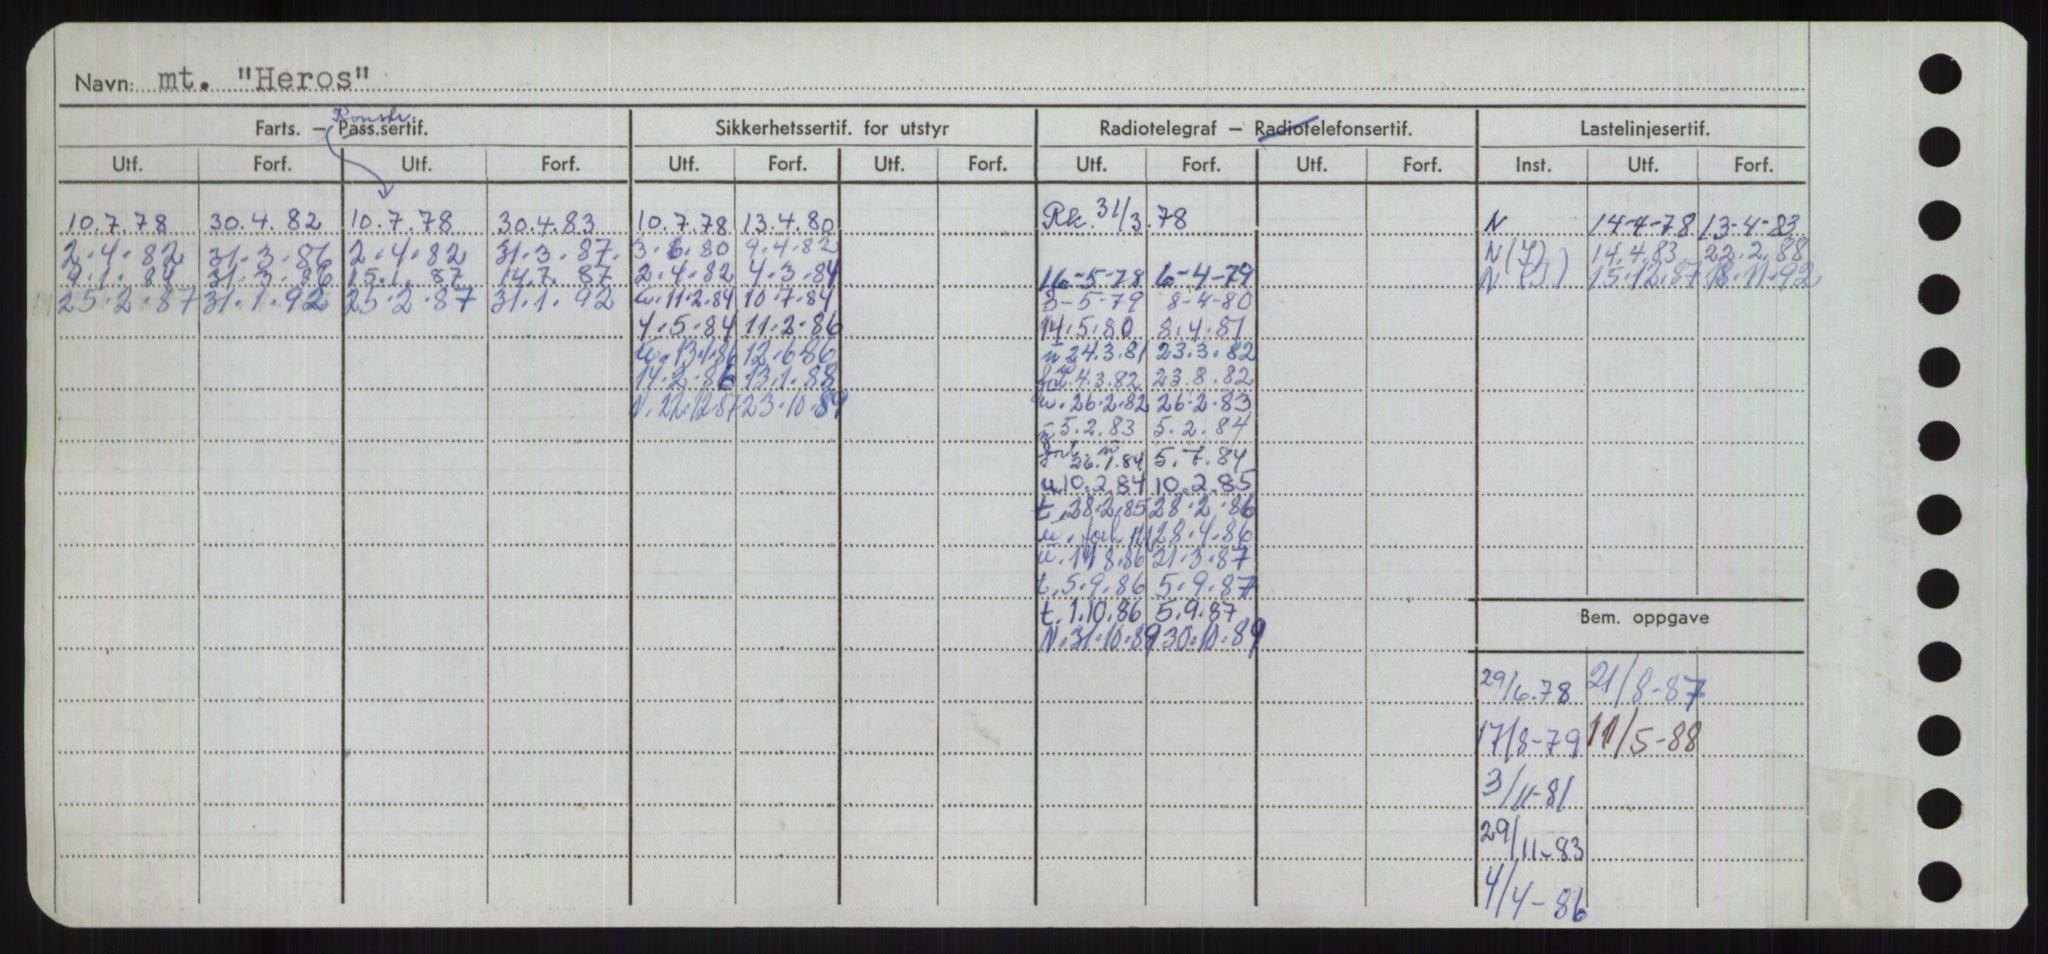 Navn: mt. "Heros"
Konstr.
Farts. – Pass.sertif. Sikkerhetssertif. for utstyr Radiotelegraf – Radiotelefonsertif. Lastelinjesertif.
Utf. Forf. Utf. Forf. Utf. Forf. Utf. Forf. Utf. Forf. Utf. Forf. Inst. Utf. Forf.
10.7.78 30.4.82 10.7.78 30.4.83 10.7.78 13.4.80 Rk. 31/3.78 N 14-4-78 13-4-83
2.4.82 31.3.86 2.4.82 31.3.87. 3.6.80 9.4.82 N(7) 14.4.83 22.2.88
9.1.84 31.3.86 15.1.87 14.7.87 2.4.82 4.3.84 16-5-78 6-4-79 N 15.12.87 18.11.92
25.2.87 31.1.92 25.2.87 31.1.92 u.11.2.84 10.7.84 3-5-79 8-4-80
4.5.84 11.2.86 14.5.80 8.4.81
u.13.1.86 12.6.86 n 24.3.81 23.3.82
14.2.86 13.1.88 forl. 4.3.82 23.8.82
N.22.12.87 23.10.89 u.26.2.82 26.2.83
n 5.2.83 5.2.84
forl. n 26.1.84 5.7.84
u 10.2.84 10.2.85
t.28.2.85 28.2.86
u. forl. 28.4.86
u. 8.86 21.3.87
t.5.9.86 5.9.87
t.1.10.86 5.9.87
N.31.10.89 30.10.89
Bem. oppgave
29/6.78 21/8-87
17/8-79 11/5-88
3/11-81
29/11-83
4/4-86